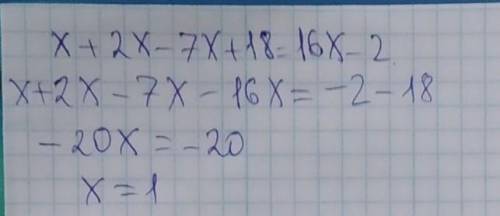 x + 2x - 7x + 18 = 16x - 2
x + 2x - 7x - 16x = -2 - 18
- 20x = - 20
x = 1